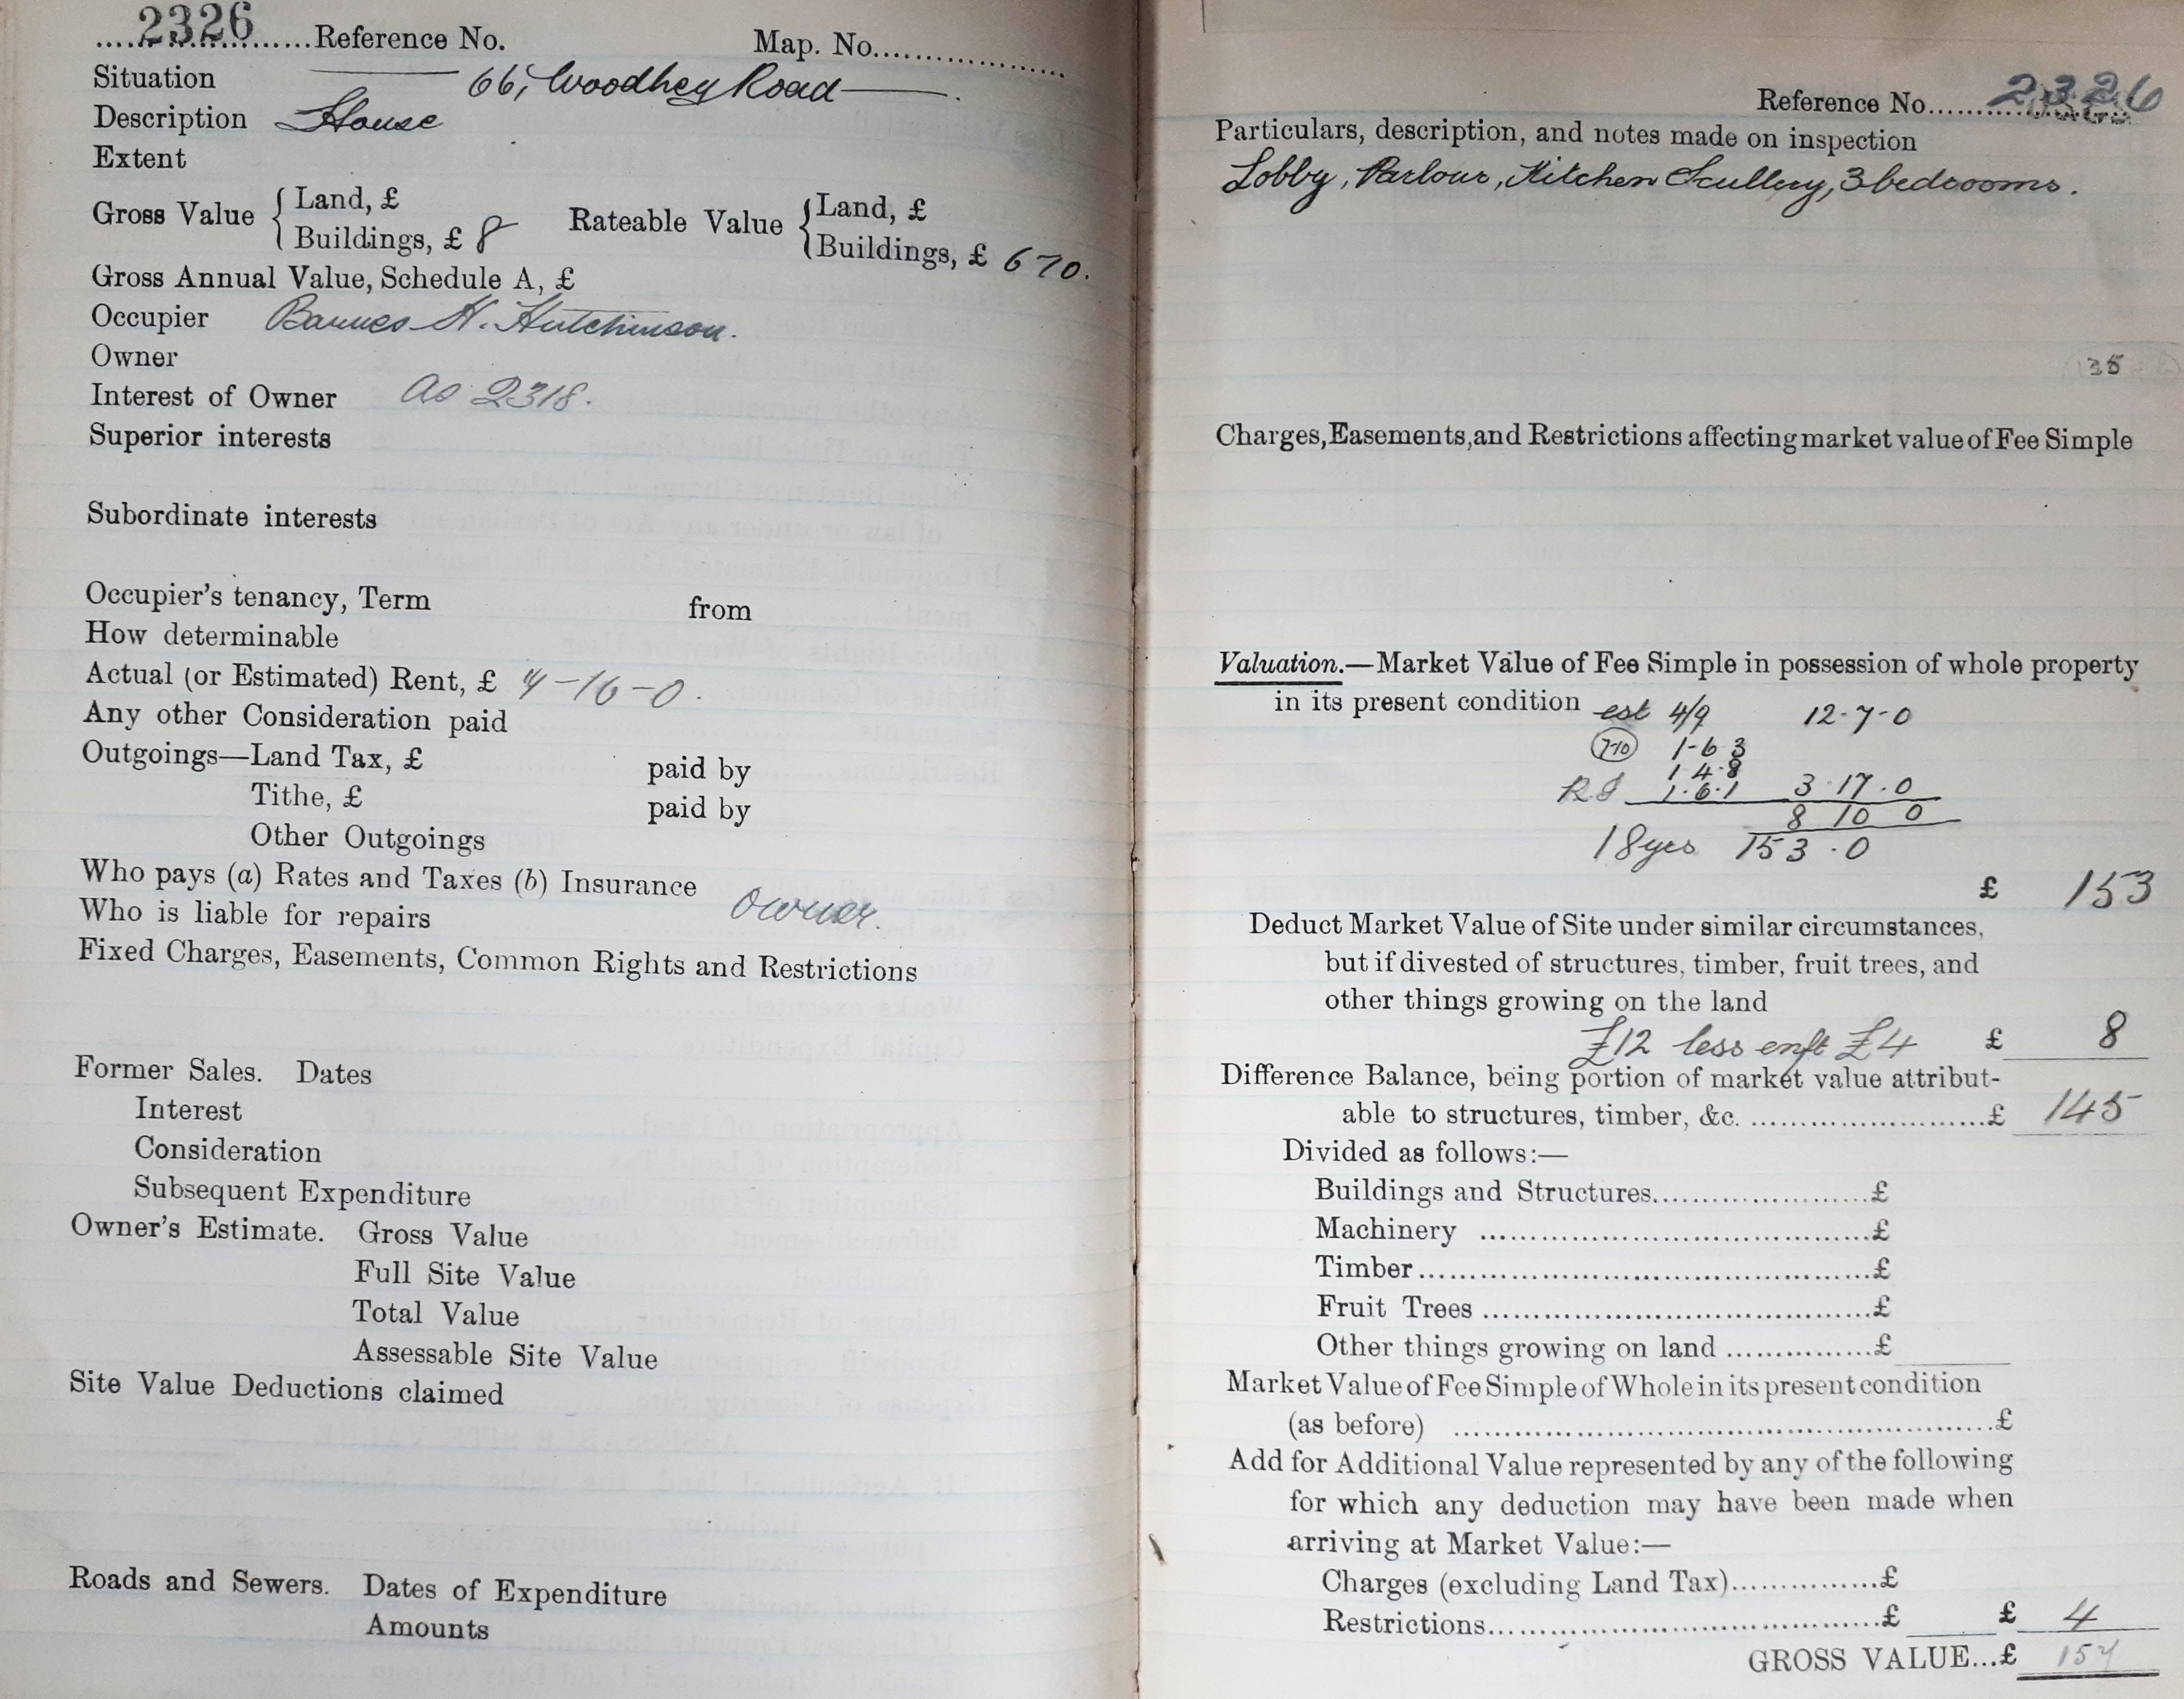 2326 Reference No. Map. No.
Situation 66, Woodhey Road
Description House
Extent
Gross Value { Land, £ Rateable Value { Land, £
Buildings, £ 8 Buildings, £ 6 70.
Gross Annual Value, Schedule A, £
Occupier Barnes H. Hutchinson.
Owner
Interest of Owner as 2318.
Superior interests
Subordinate interests
Occupier's tenancy, Term from
How determinable
Actual (or Estimated) Rent, £ 4-16-0.
Any other Consideration paid
Outgoings—Land Tax, £ paid by
Tithe, £ paid by
Other Outgoings
Who pays (a) Rates and Taxes (b) Insurance
Who is liable for repairs owner.
Fixed Charges, Easements, Common Rights and Restrictions
Former Sales. Dates
Interest
Consideration
Subsequent Expenditure
Owner's Estimate. Gross Value
Full Site Value
Total Value
Assessable Site Value
Site Value Deductions claimed
Roads and Sewers. Dates of Expenditure
Amounts
Reference No. 2326
Particulars, description, and notes made on inspection
Lobby, Parlour, Kitchen Scullery, 3 bedrooms.
135
Charges, Easements, and Restrictions affecting market value of Fee Simple
Valuation.—Market Value of Fee Simple in possession of whole property
in its present condition est 4/9 12-7-0
7-10 1-6 3
1 4.8
R.I 1.6.1 3.17.0
8 10 0
18 yrs 153.0
£ 153
Deduct Market Value of Site under similar circumstances,
but if divested of structures, timber, fruit trees, and
other things growing on the land
£12 less enft £4 £ 8
Difference Balance, being portion of market value attribut-
able to structures, timber, &c. £ 145
Divided as follows:—
Buildings and Structures £
Machinery £
Timber £
Fruit Trees £
Other things growing on land £
Market Value of Fee Simple of Whole in its present condition
(as before) £
Add for Additional Value represented by any of the following
for which any deduction may have been made when
arriving at Market Value:—
Charges (excluding Land Tax) £
Restrictions £ £ 4
GROSS VALUE...£ 157